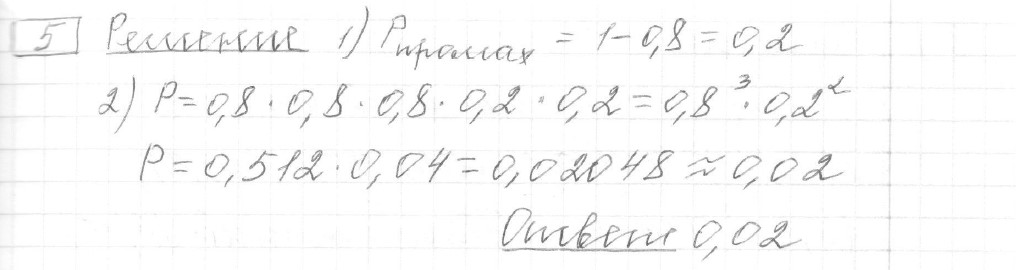 5 Решение 1) Pпромах = 1 - 0,8 = 0,2
2) P = 0,8 · 0,8 · 0,8 · 0,2 · 0,2 = 0,8³ · 0,2²
P = 0,512 · 0,04 = 0,02048 ≈ 0,02
Ответ 0,02